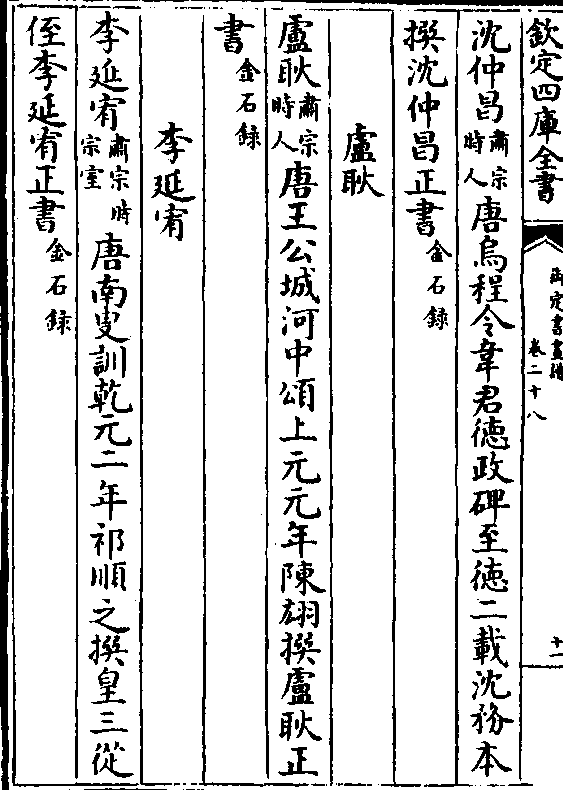 欽定四庫全書
御定書畫譜
卷二十八
十一
沈仲昌肅宗時人唐烏程令韋君徳政碑至徳二載沈務本
撰沈仲昌正書金石録
盧耿
盧耿肅宗時人唐王公城河中頌上元元年陳翃撰盧耿正
書金石録
李延宥
李延宥肅宗時宗室唐南叟訓乾元二年祁順之撰皇三從
侄李延宥正書金石録